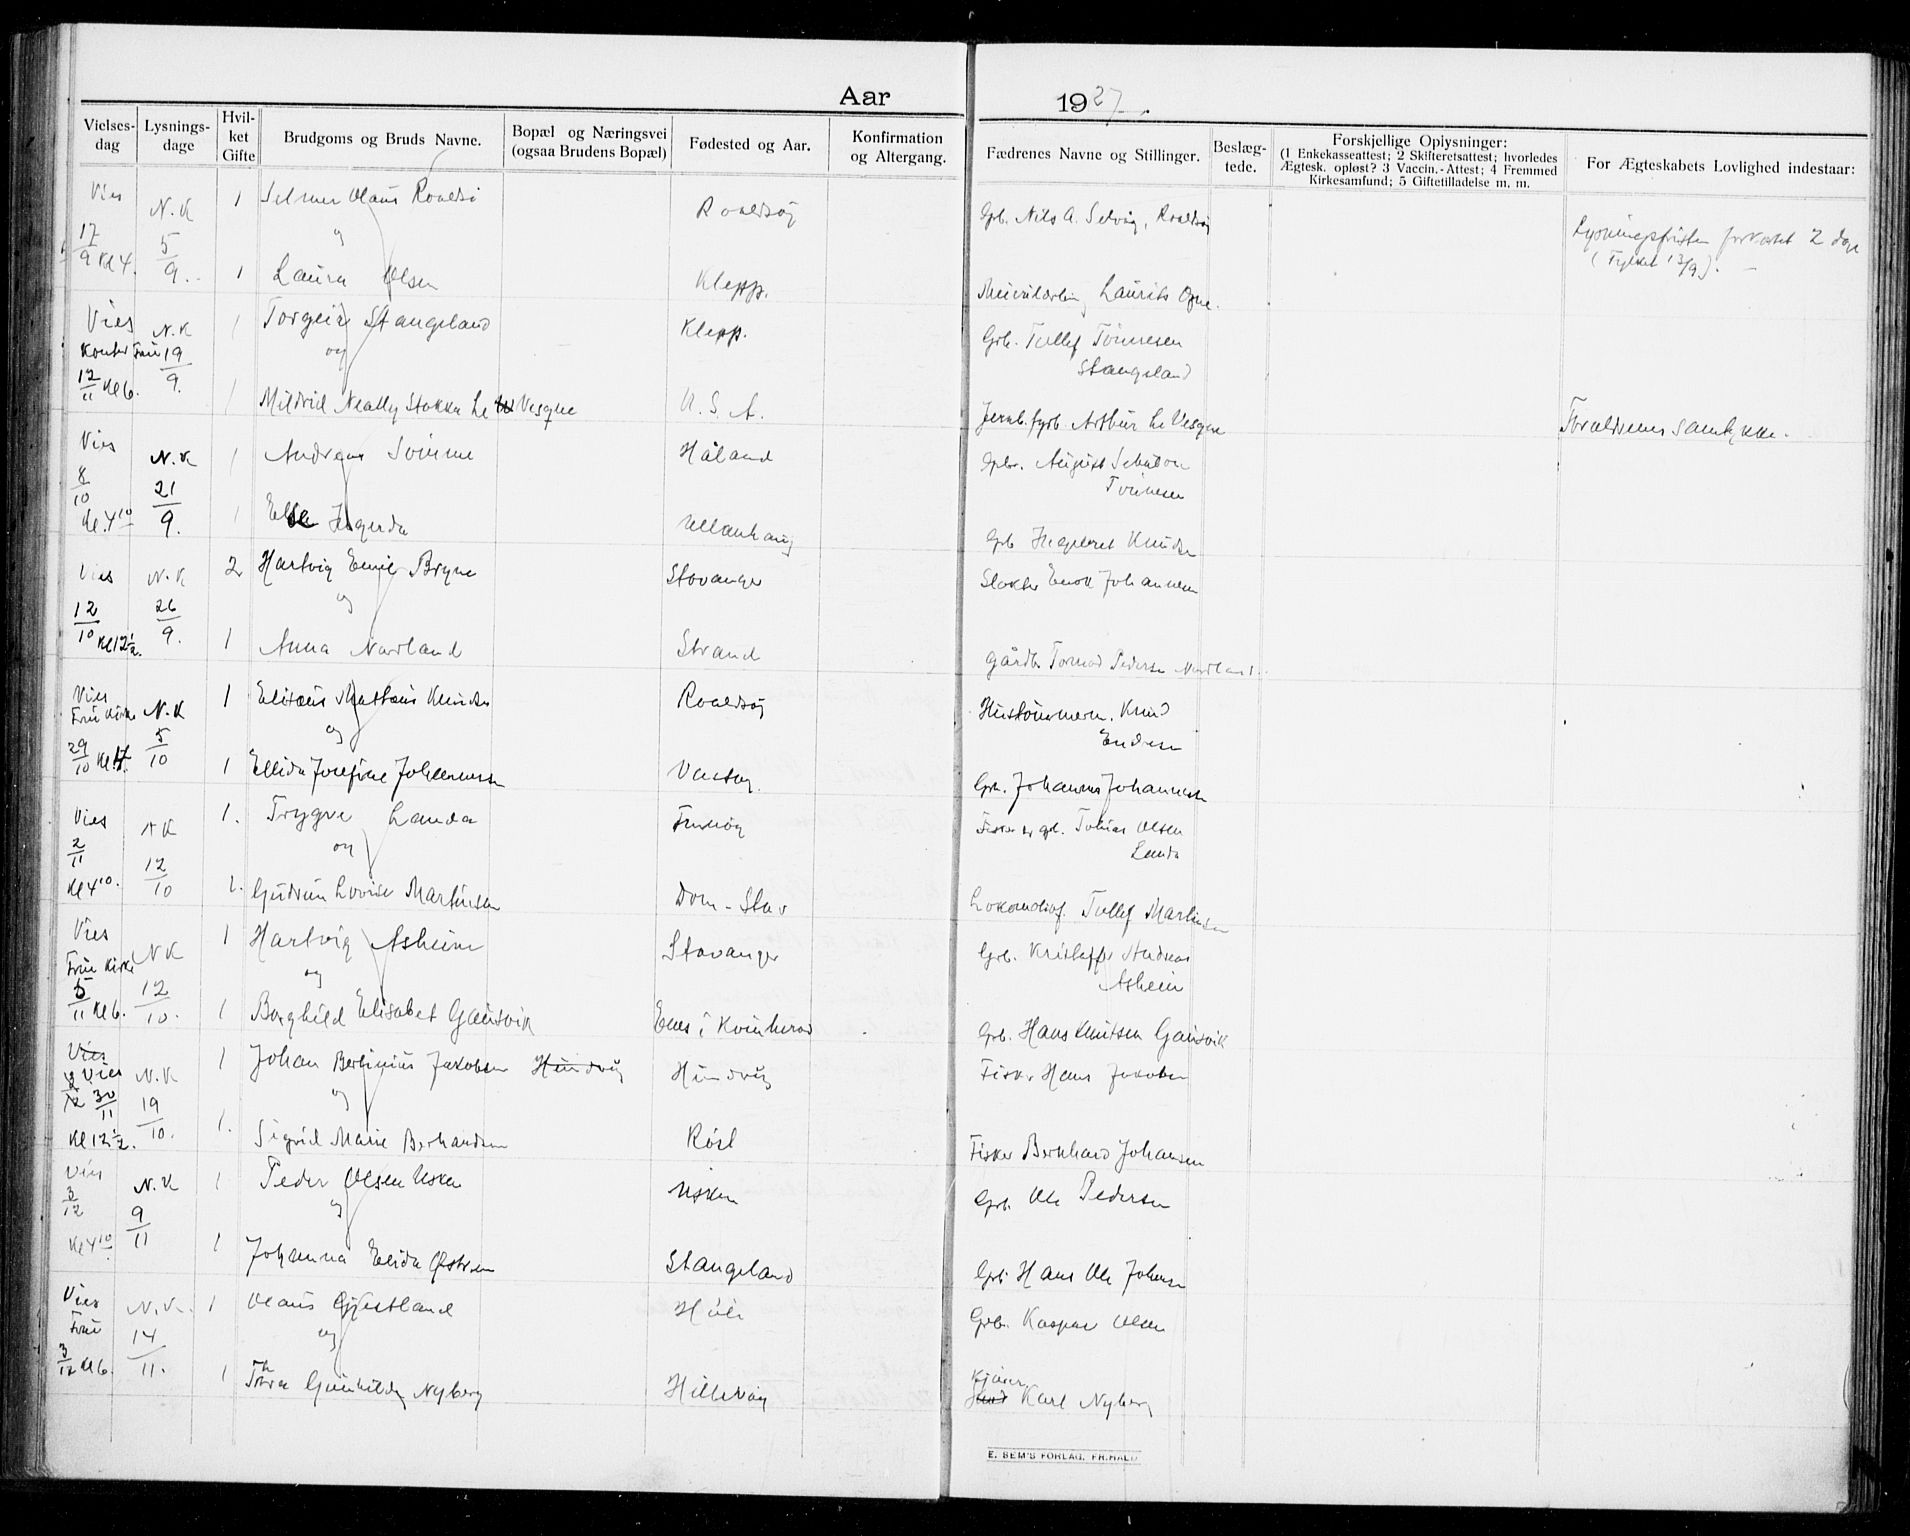 Aar 1927.
Vielses-dag
Lysnings-dage
Hvil-ket Gifte
Brudgoms og Bruds Navne.
Bopæl og Næringsvei (ogsaa Brudens Bopæl)
Fødested og Aar.
Konfirmation og Altergang.
Fædrenes Navne og Stillinger.
Beslæg-tede.
Forskjellige Oplysninger:
(1 Enkekasseattest; 2 Skifteretsattest; hvorledes Ægtesk. opløst? 3 Vaccin.-Attest; 4 Fremmed Kirkesamfund; 5 Giftetilladelse m. m.
For Ægteskabets Lovlighed indestaar:
Vies N.K 1 Selmer Olaus Roaldsø Roaldsøy Gpb. Nils A. Selvig, Roaldsøy
17/9 Kl 4. 5/9. og Lysningsfristen forkortet 2 dage
(Fylket 13/9).
1 Laura Olsen Klepp. Laurits
Vies N.K 1 Torgeir Stangeland Klepp. Grb. Tollef Tönnesen
Stangeland
19/9. og
12/11 Kl 6. 1 Mildrid Neally Stokka Le Vesque U.S.A. Jernb. Arthur Le Vesque Forældrenes samtykke.
Vies N.K 1 Andreas Sømme Håland Gpbr. August
Tönnesen
8/10 21/9.
Kl. 4 10 1 Else Ingerda Ullenhaug Gpb Ingebret Knudsen
Vies N.K 2 Hartvig Emil Bryne Stavanger Slakter Enok Johannesen
12/10 Kl 12 1/2. 26/9. og
1 Anna Nordland Strand Gårdb. Tormod Pedersen Nordland.
Vies N.K 1 Elisæus Mattæus Knudsen Roaldsøy Hustömmerm. Knud
Endresen
Frue Kirke og
29/10 5/10 1 Ellida Josefine Johannessen Grb. Johannes Johannesen
Vies N K 1. Trygve Landa Fisker og gb. Tobias Olsen
Landa
2/11 12/10 og
Kl 4 10. 1. Gudrun Lovise Martinsen Dom - Stav Lokomotivf. Tollef Martinsen
Vies N K 1 Hartvig Asheim Stavanger Grb. Kristoffer Andreas
Asheim
Frue Kirke og
5/11 Kl 6. 12/10. 1 Borghild Elisabet Gausvik Enes i Kvinherad Grb. Hans Knutsen Gausvik
Vies
Vies N.K 1 Johan Bertinius Jakobsen Hundvåg Hundvåg Fisker Hans Jakobsen
30/11 19/10. og
Kl 12 1/2. 1. Sigrid Marie Berhardsen Röst Fisker Bernhard Johansen
Vies N.K 1 Peder Olsen Usken Usken Grb. Ole Pedersen
3/12 9/11 og
Kl 4 10. 1 Johanna Elida Østrem Stangeland Grb. Hans Ole Johnsen
Vies N.K. 1 Olaus Gjestland Höle Grb. Kaspar Olsen
Frue 14/11. og
3/12 Kl 6. 1 Thora Gunhilda Nyberg Hillevåg Karl Nyberg
E. SEM'S FORLAG, FR.HALD